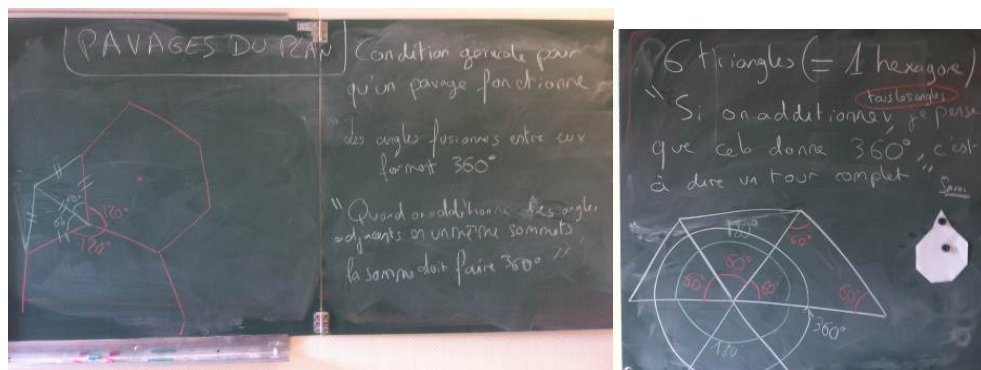 PAVAGES DU PLAN
Condition générale pour
qu'un pavage fonctionne
"Les angles fusionnés entre eux
forment 360°
"Quand on additionne des angles
adjacents en un même sommet,
la somme doit faire 360°"
120°
60°
60°
120°
6 triangles (= 1 hexagone)
tous les angles
"Si on additionne, je pense
que cela donne 360°, c'est
à dire un tour complet"
180°
60°
60°
60°
60°
60°
360°
180